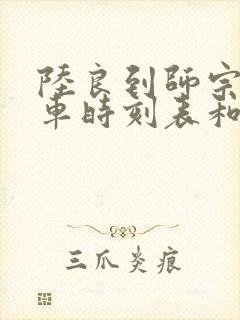 陸良到師宗
車時刻表和
三爪炎痕